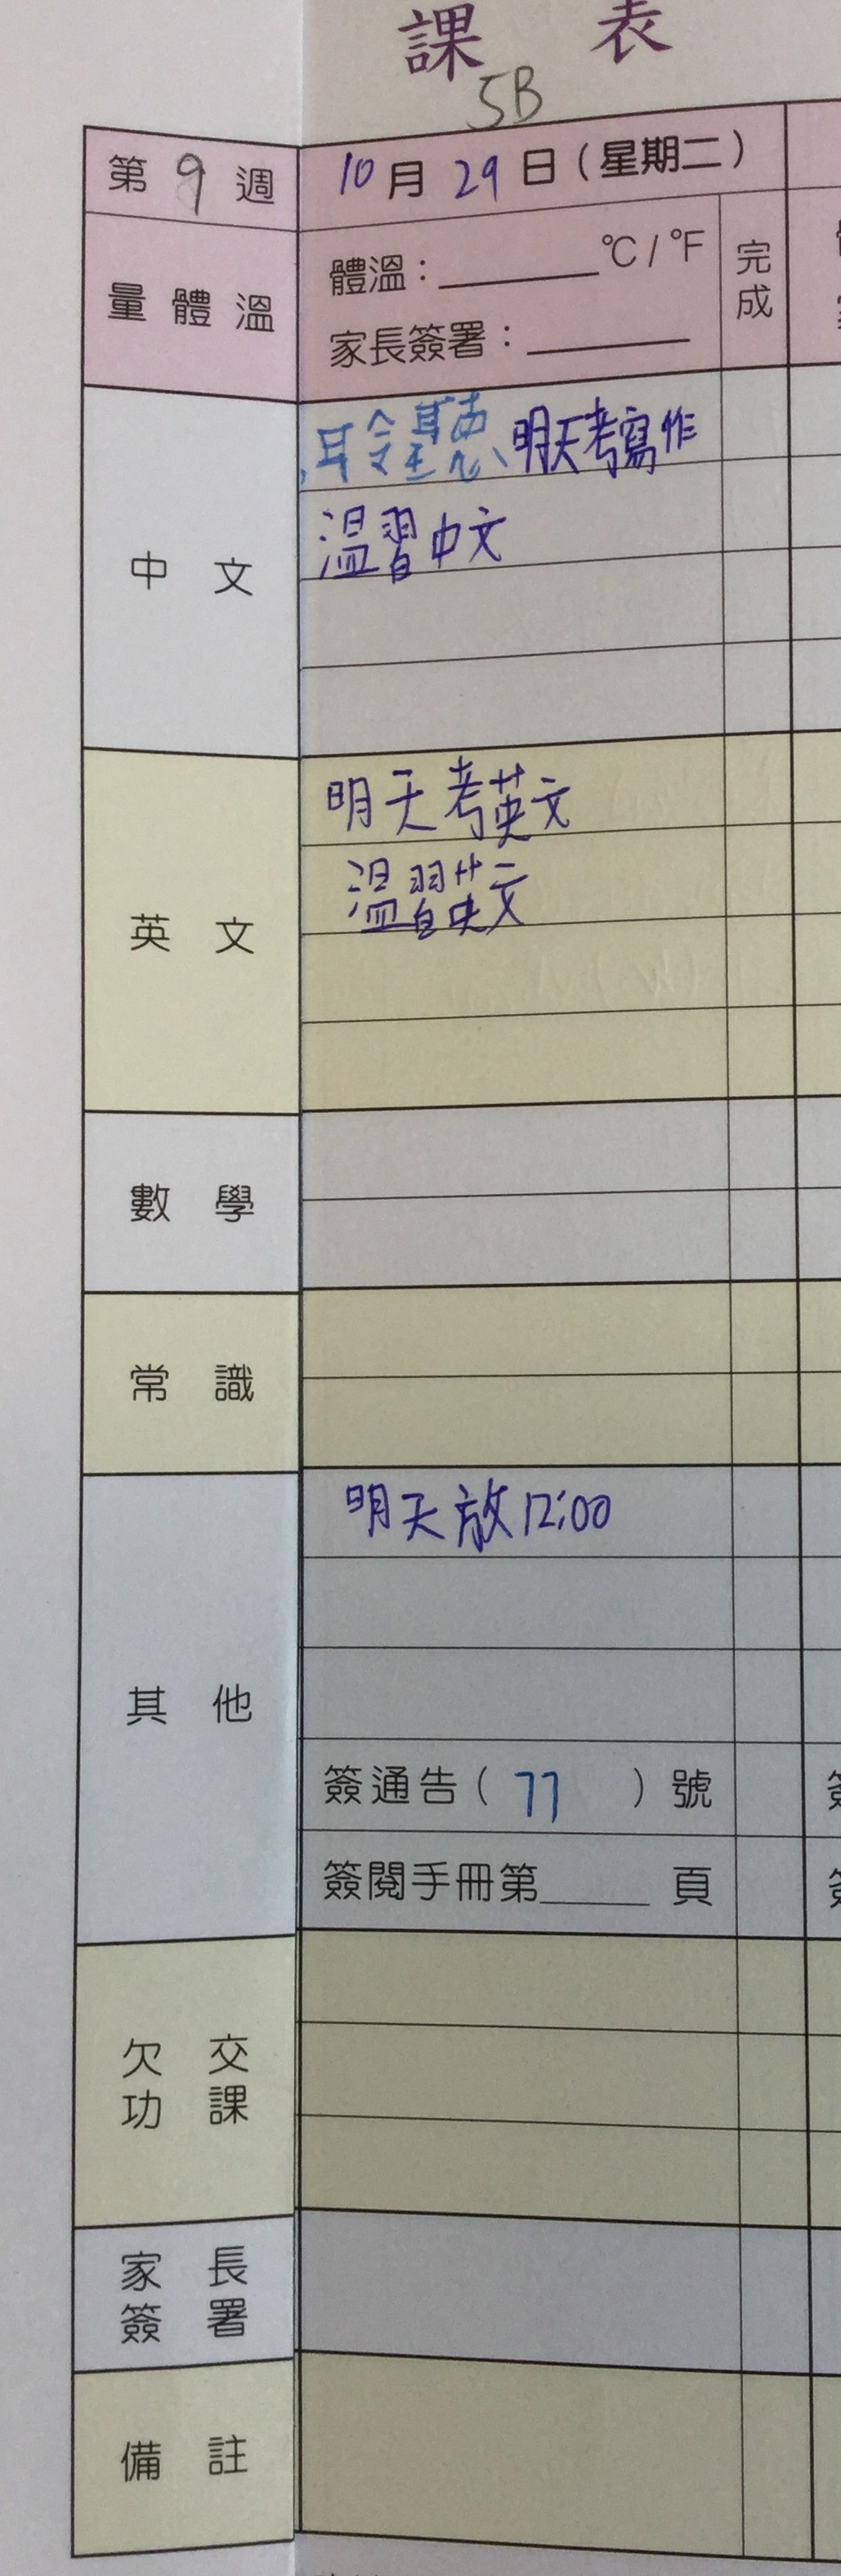 課 表
5B
第 9 週
10 月 29 日（星期二）
量 體 溫
體溫：______°C / °F
家長簽署：______
完成
中 文
聆聽、明天考寫作
溫習中文
英 文
明天考英文
溫習英文
數 學
常 識
其 他
明天放12:00
簽通告（ 77 ）號
簽閱手冊第_____ 頁
欠 交
功 課
家 長
簽 署
備 註